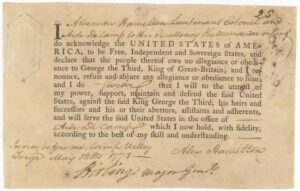 25
I Alexander Hamilton Lieutenant Colonel and
Aide De Camp to His Excellency the Commander in Chief
do acknowledge the UNITED STATES of AME-
RICA, to be Free, Independent and Sovereign States, and
declare that the people thereof owe no allegiance or obedi-
ence to George the Third, King of Great-Britain; and I re-
nounce, refuse and abjure any allegiance or obedience to him;
and I do swear that I will to the utmost of
my power, support, maintain and defend the said United
States, against the said King George the Third, his heirs and
successors and his or their abettors, assistants and adherents,
and will serve the said United States in the office of
Aide De Camp which I now hold, with fidelity,
according to the best of my skill and understanding.
Sworn before me Camp Valley
Forge May 12th 1778
Alex Hamilton
Stirling Major Genl